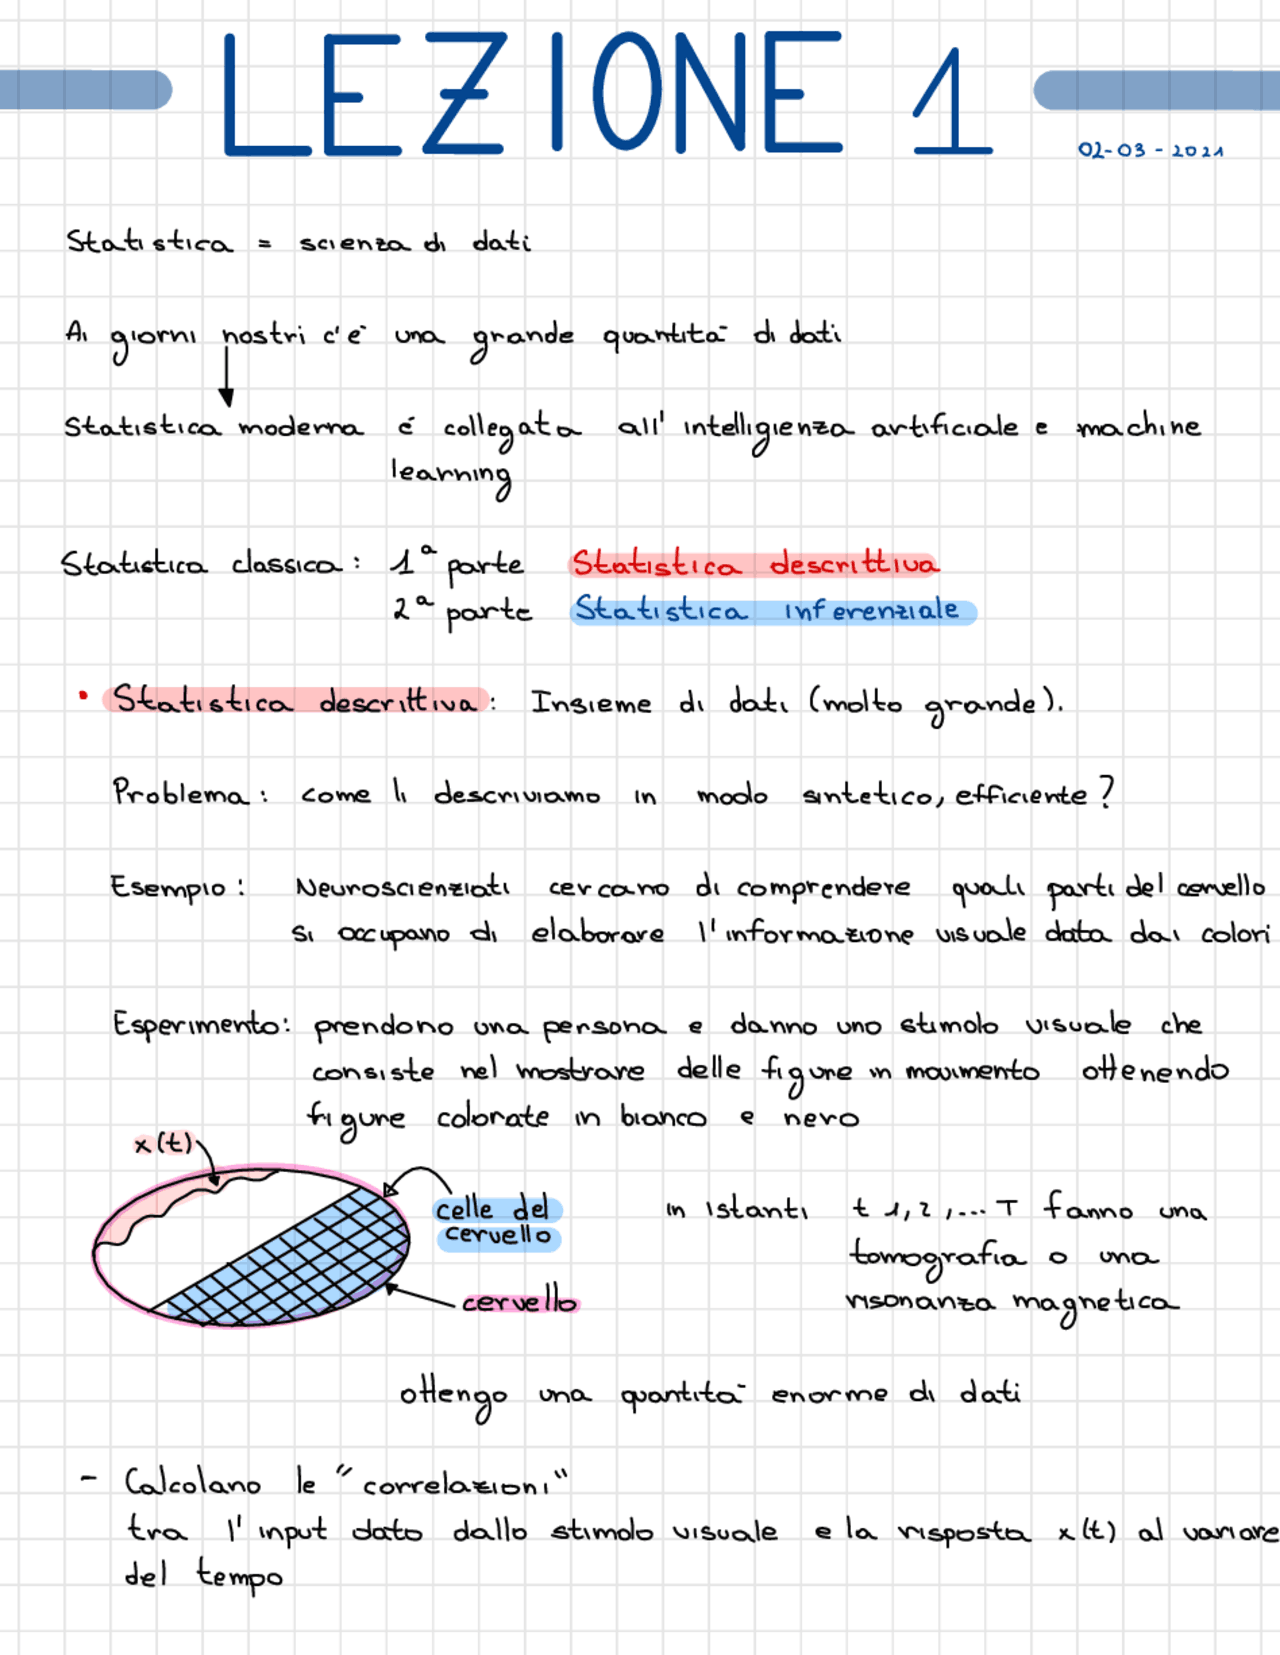 LEZIONE 1
02-03-2021
Statistica = scienza di dati
Ai giorni nostri c'è una grande quantità di dati
Statistica moderna é collegata all'intelligienza artificiale e machine
learning
Statistica classica: 1ª parte Statistica descrittiva
2ª parte Statistica inferenziale
• Statistica descrittiva: Insieme di dati (molto grande).
Problema: come li descriviamo in modo sintetico, efficiente?
Esempio: Neuroscienziati cercano di comprendere quali parti del cervello
si occupano di elaborare l'informazione visuale data dai colori
Esperimento: prendono una persona e danno uno stimolo visuale che
consiste nel mostrare delle figure in movimento ottenendo
figure colorate in bianco e nero
x(t)
celle del
cervello
cervello
in istanti t 1,2,... T fanno una
tomografia o una
risonanza magnetica
ottengo una quantità enorme di dati
- Calcolano le "correlazioni"
tra l'input dato dallo stimolo visuale e la risposta x(t) al variare
del tempo